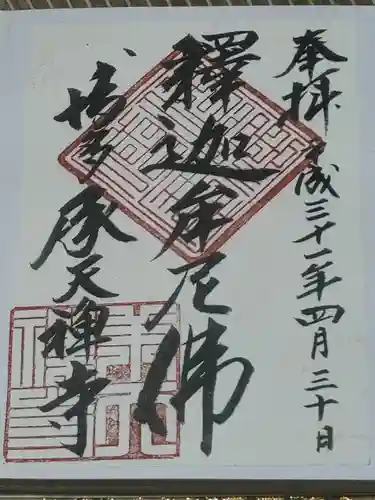 奉拝 平成三十一年四月三十日
釋迦牟尼佛
博多承天禅寺